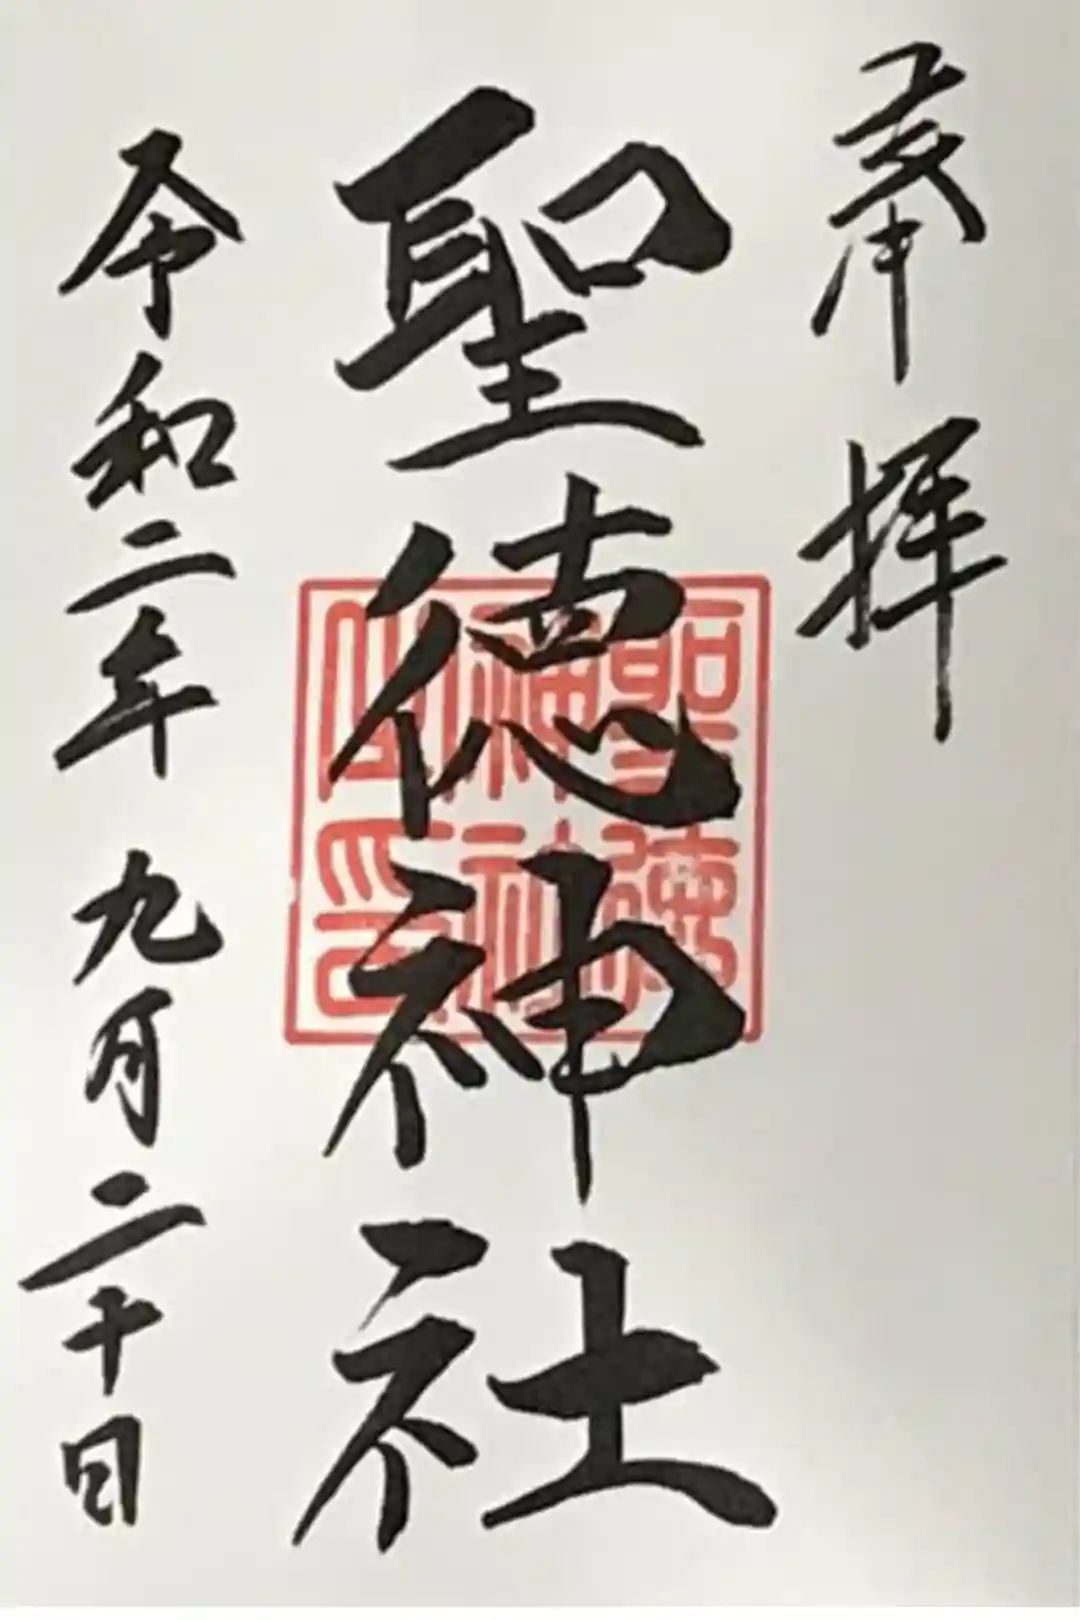 奉拝
聖徳神社
聖徳
神社
之印
令和二年 九月二十日